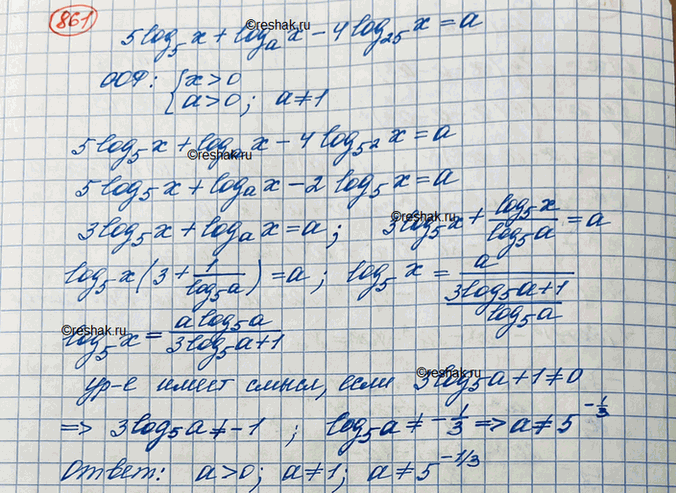 861
5log₅x + logₐx − 4log₂₅x = a
ООФ: { x > 0
a > 0; a ≠ 1
5log₅x + logₐx − 4log₅²x = a
5log₅x + logₐx − 2log₅x = a
3log₅x + logₐx = a; 3log₅x + log₅x/log₅a = a
log₅x(3 + 1/log₅a) = a; log₅x = a/((3log₅a+1)/log₅a)
log₅x = a log₅a/(3log₅a+1)
ур-е имеет смысл, если 3log₅a + 1 ≠ 0
=> 3log₅a ≠ -1; log₅a ≠ -1/3 => a ≠ 5^(-1/3)
Ответ: a > 0; a ≠ 1; a ≠ 5^(-1/3)
©reshak.ru
©reshak.ru
©reshak.ru
©reshak.ru
©reshak.ru